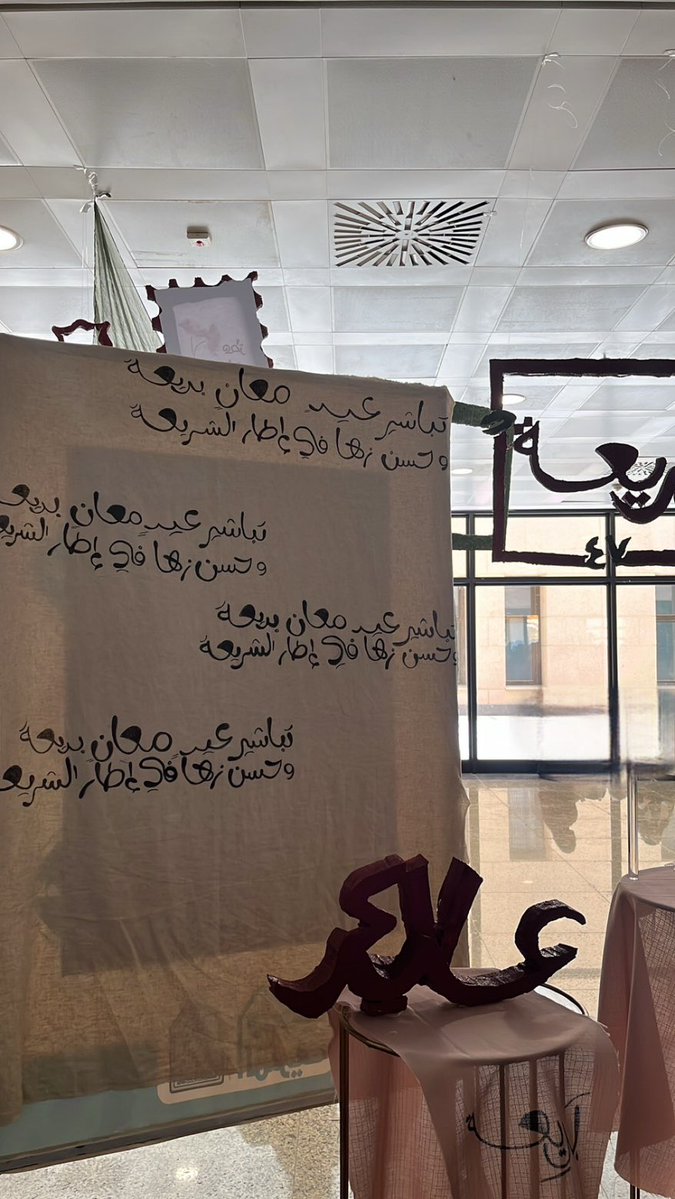 تباشير عيدٍ معانٍ بديعة
وحسن زها في إطار الشريعة
تباشير عيدٍ معانٍ بديعة
وحسن زها في إطار الشريعة
تباشير عيدٍ معانٍ بديعة
وحسن زها في إطار الشريعة
تباشير عيدٍ معانٍ بديعة
وحسن زها في إطار الشريعة
٤٧